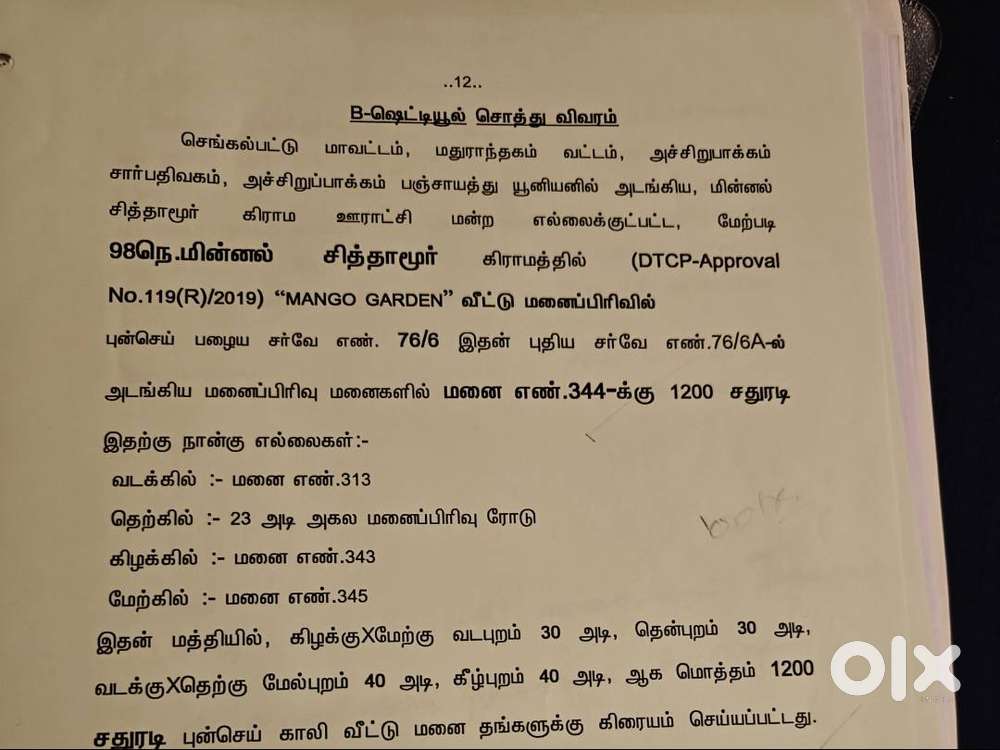 ..12..
B-ஷெட்டியூல் சொத்து விவரம்
செங்கல்பட்டு மாவட்டம், மதுராந்தகம் வட்டம், அச்சிறுபாக்கம்
சார்பதிவகம், அச்சிறுப்பாக்கம் பஞ்சாயத்து யூனியனில் அடங்கிய, மின்னல்
சித்தாமூர் கிராம ஊராட்சி மன்ற எல்லைக்குட்பட்ட, மேற்படி
98நெ.மின்னல் சித்தாமூர் கிராமத்தில் (DTCP-Approval
No.119(R)/2019) “MANGO GARDEN” வீட்டு மனைப்பிரிவில்
புன்செய் பழைய சர்வே எண். 76/6 இதன் புதிய சர்வே எண்.76/6A-ல்
அடங்கிய மனைப்பிரிவு மனைகளில் மனை எண்.344-க்கு 1200 சதுரடி
இதற்கு நான்கு எல்லைகள்:-
வடக்கில் :- மனை எண்.313
தெற்கில் :- 23 அடி அகல மனைப்பிரிவு ரோடு
கிழக்கில் :- மனை எண்.343
மேற்கில் :- மனை எண்.345
இதன் மத்தியில், கிழக்குXமேற்கு வடபுறம் 30 அடி, தென்புறம் 30 அடி,
வடக்குXதெற்கு மேல்புறம் 40 அடி, கீழ்புறம் 40 அடி, ஆக மொத்தம் 1200
சதுரடி புன்செய் காலி வீட்டு மனை தங்களுக்கு கிரையம் செய்யப்பட்டது.
olx